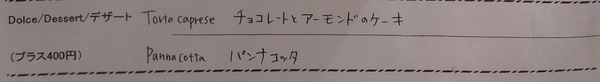 Dolce/Dessert/デザート Torta caprese チョコレートとアーモンドのケーキ
(プラス400円) Panna cotta パンナコッタ